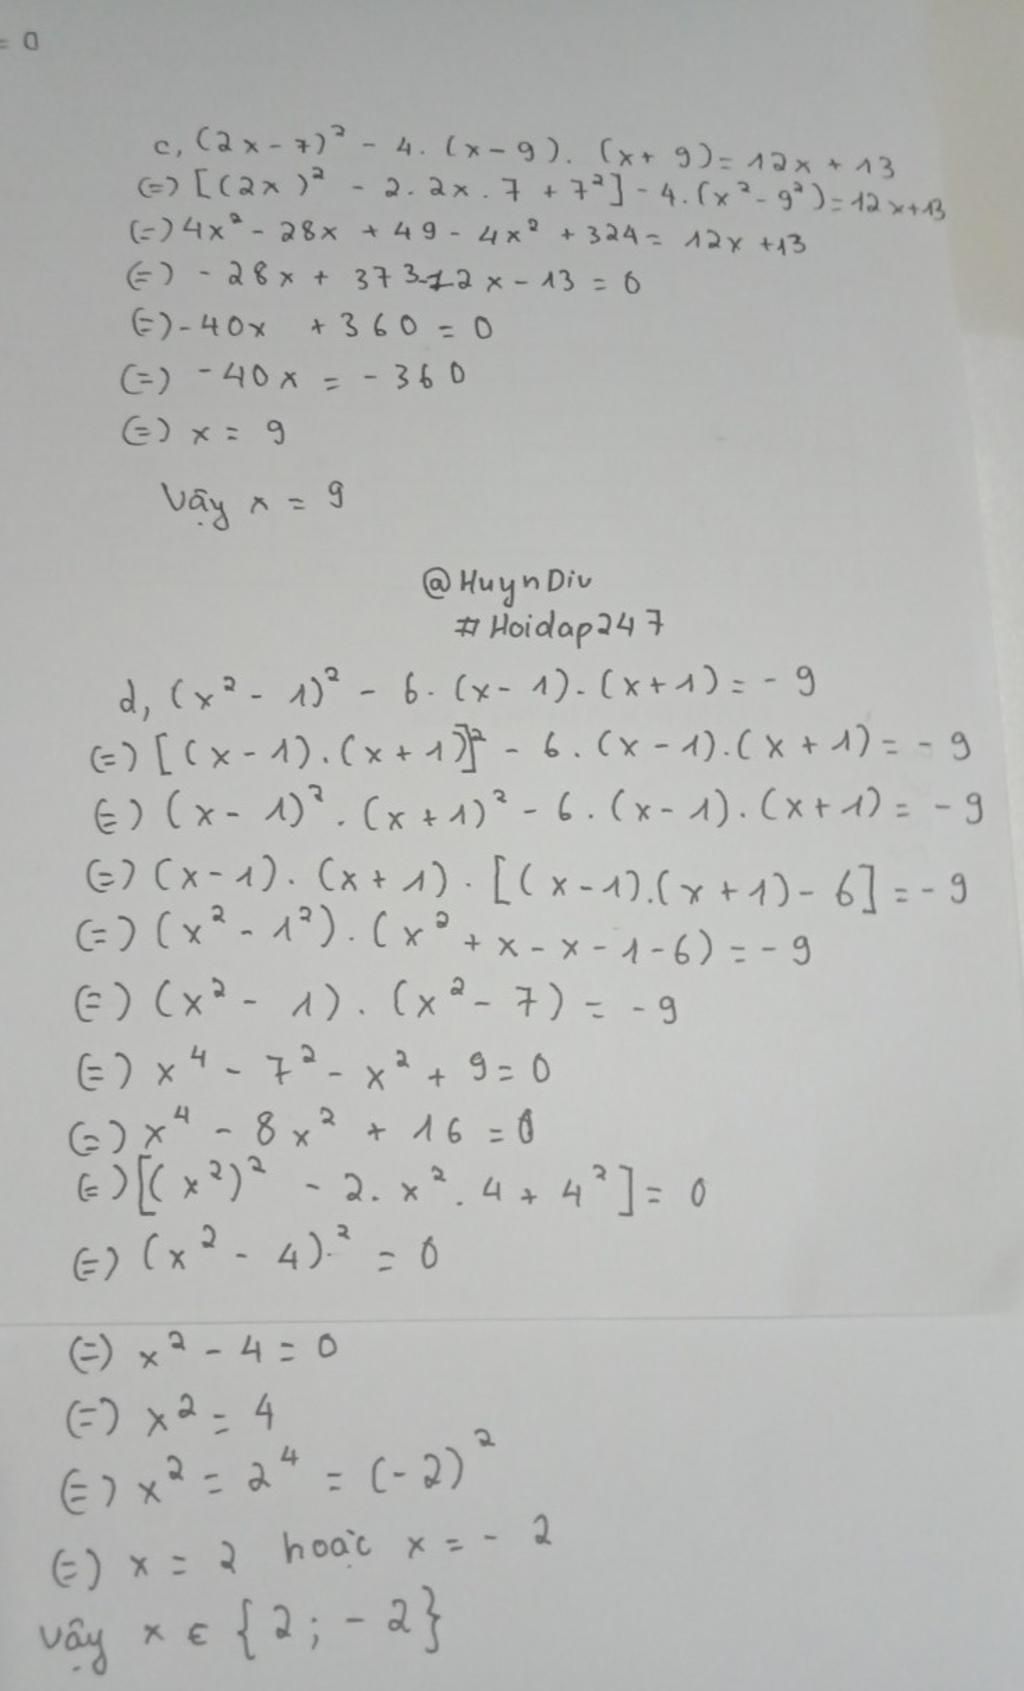 = 0
c, (2x - 7)² - 4. (x - 9). (x + 9) = 12x + 13
(=) [(2x)² - 2. 2x. 7 + 7²] - 4. (x² - 9²) = 12x + 13
(=) 4x² - 28x + 49 - 4x² + 324 = 12x + 13
(=) - 28x + 373 - 12x - 13 = 0
(=) - 40x + 360 = 0
(=) - 40x = - 360
(=) x = 9
Vậy x = 9
@HuynDiu
#Hoidap247
d, (x² - 1)² - 6. (x - 1). (x + 1) = - 9
(=) [(x - 1). (x + 1)]² - 6. (x - 1). (x + 1) = - 9
(=) (x - 1)². (x + 1)² - 6. (x - 1). (x + 1) = - 9
(=) (x - 1). (x + 1). [(x - 1). (x + 1) - 6] = - 9
(=) (x² - 1²). (x² + x - x - 1 - 6) = - 9
(=) (x² - 1). (x² - 7) = - 9
(=) x⁴ - 7² - x² + 9 = 0
(=) x⁴ - 8x² + 16 = 0
(=) [(x²)² - 2. x². 4 + 4²] = 0
(=) (x² - 4)² = 0
(=) x² - 4 = 0
(=) x² = 4
(=) x² = 2⁴ = (- 2)²
(=) x = 2 hoặc x = - 2
Vậy x ∈ {2; - 2}